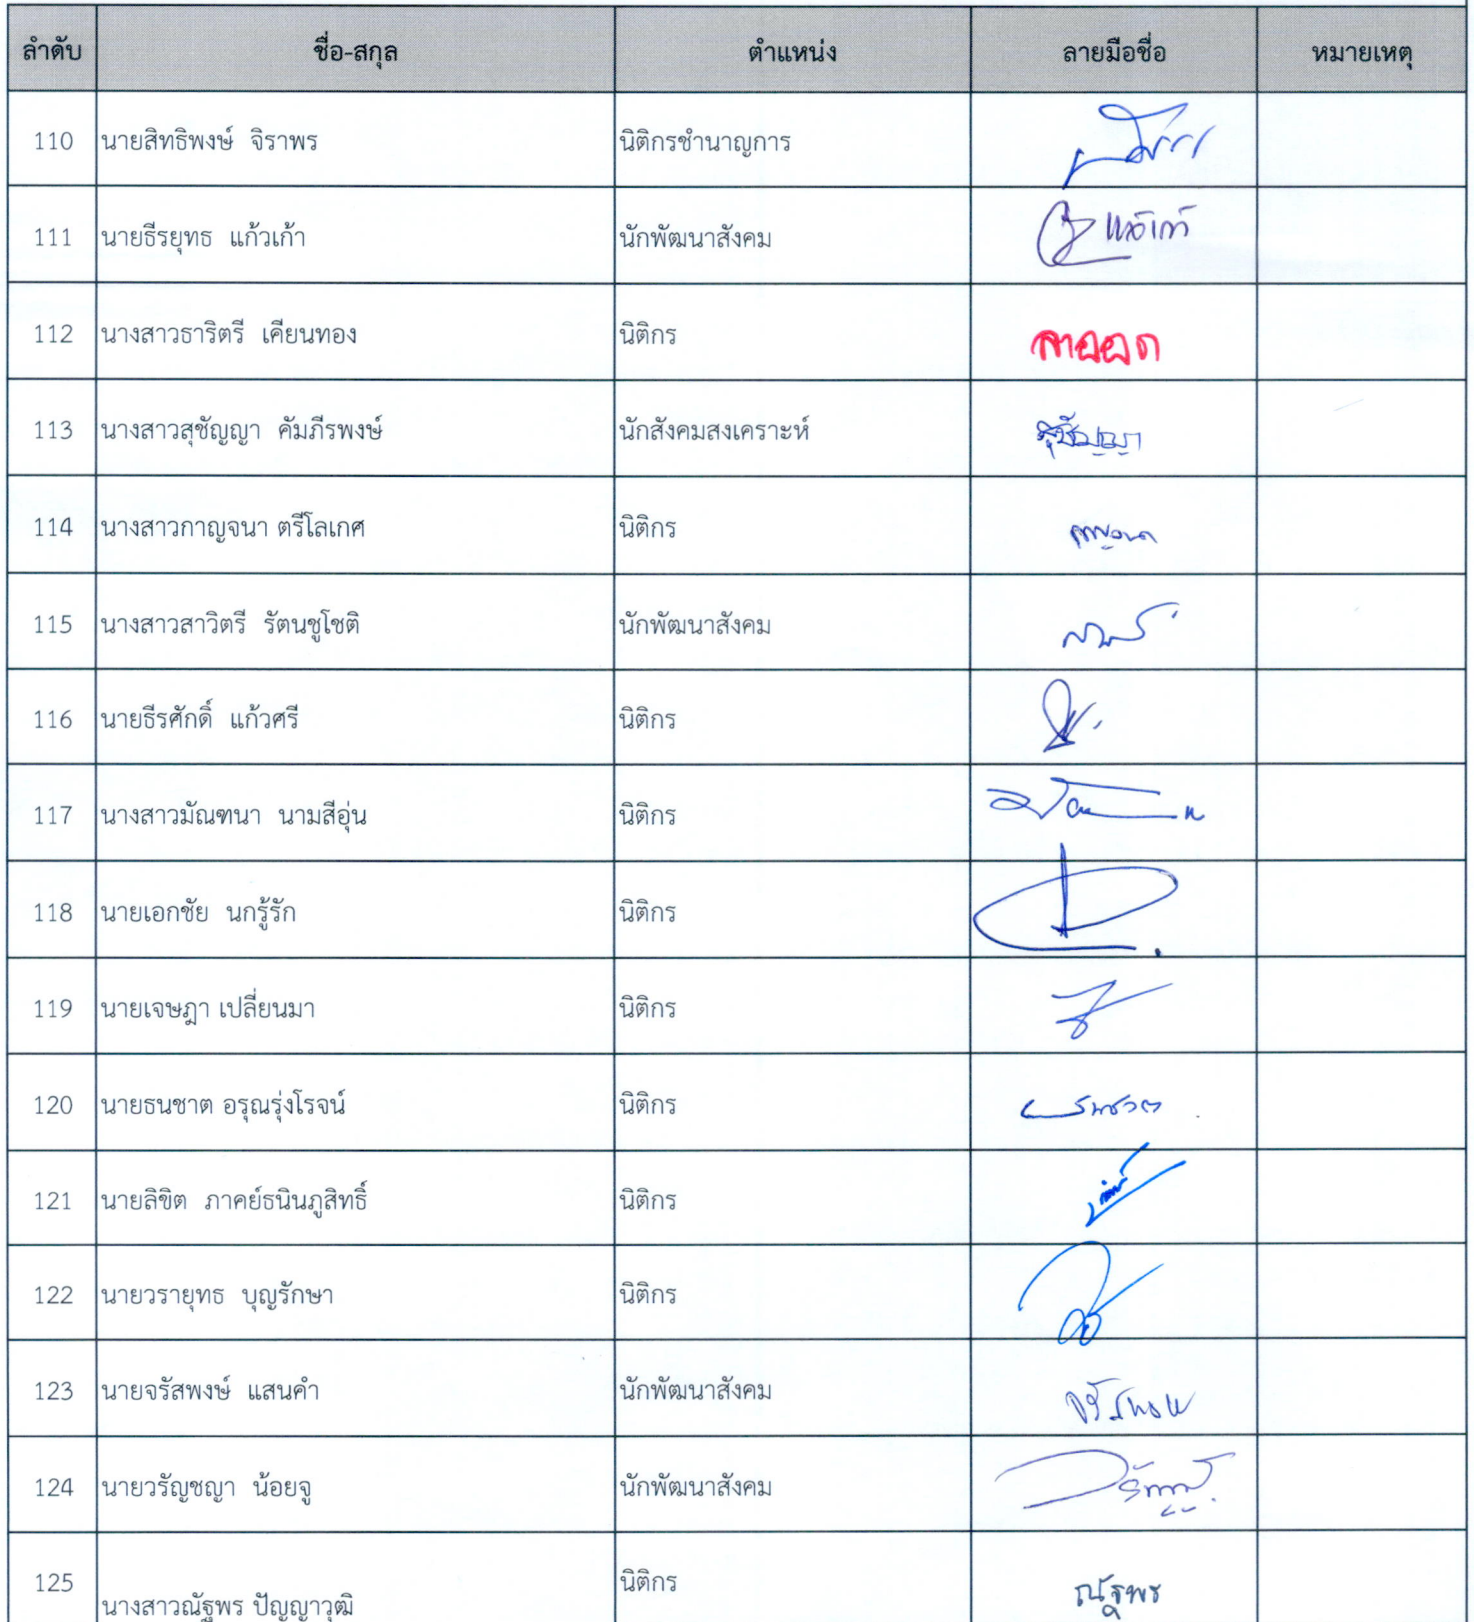 ลำดับ ชื่อ-สกุล ตำแหน่ง ลายมือชื่อ หมายเหตุ
110 นายสิทธิพงษ์ จิราพร นิติกรชำนาญการ
111 นายธีรยุทธ แก้วเก้า นักพัฒนาสังคม แก้วเก้า
112 นางสาวธาริตรี เคียนทอง นิติกร ลาออก
113 นางสาวสุชัญญา คัมภีรพงษ์ นักสังคมสงเคราะห์ สุชัญญา
114 นางสาวกาญจนา ตรีโลเกศ นิติกร กาญจนา
115 นางสาวสาวิตรี รัตนชูโชติ นักพัฒนาสังคม
116 นายธีรศักดิ์ แก้วศรี นิติกร
117 นางสาวมัณฑนา นามสีอุ่น นิติกร
118 นายเอกชัย นกรู้รัก นิติกร
119 นายเจษฎา เปลี่ยนมา นิติกร
120 นายธนชาต อรุณรุ่งโรจน์ นิติกร
121 นายลิขิต ภาคย์ธนินภูสิทธิ์ นิติกร
122 นายวรายุทธ บุญรักษา นิติกร
123 นายจรัสพงษ์ แสนคำ นักพัฒนาสังคม จรัสพงษ์
124 นายวรัญชญา น้อยจู นักพัฒนาสังคม
125 นางสาวณัฐพร ปัญญาวุฒิ นิติกร ณัฐพร